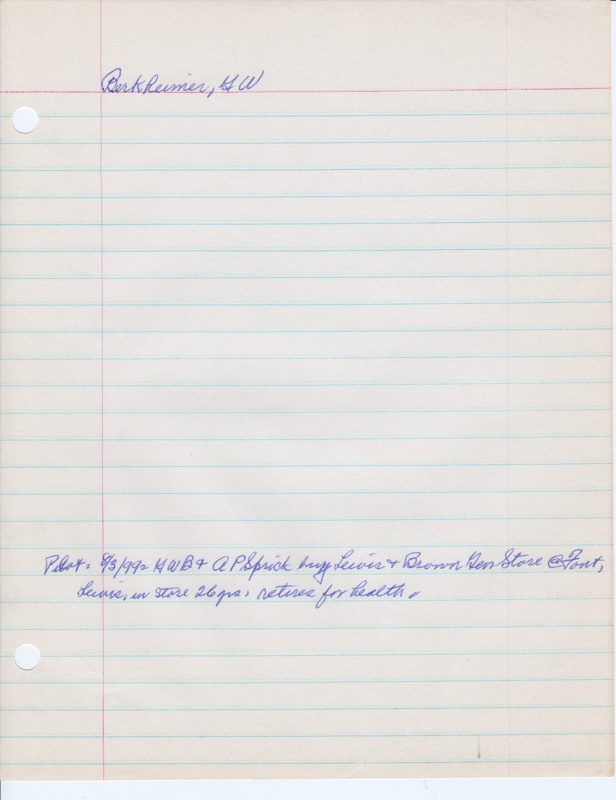 Berkheimer, G W
Pilot = 8/3/99 = G W B + A P Sprick buy Lewis + Brown Gen Store @ Font,
Lewis, in store 26 yrs, retires for health.